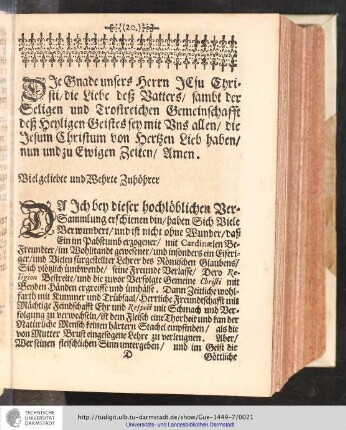 (20.)
DJe Gnade unsers Herrn JEsu Chri-
sti/ die Liebe deß Vatters/ sambt der
Seligen und Trostreichen Gemeinschafft
deß Heyligen Geistes sey mit Vns allen/ die
Jesum Christum von Hertzen Lieb haben/
nun und zu Ewigen Zeiten/ Amen.
Viel geliebte und Wehrte Zuhörer
DA Jch bey dieser hochlöblichen Ver-
Sammlung erschienen bin/ haben Sich Viele
Verwundert/ und ist nicht ohne Wunder/ daß
Ein im Pabstumb erzogener/ mit Cardinelen Be-
Freundter/ im Wohlstandt gewesener/ und insonders ein Eiferi-
ger/ und Vielen fürgestelter Lehrer des Römischen Glaubens/
Sich plötzlich umbwende/ seine Freunde Verlasse/ Dero Re-
ligion Bestreite/ und die zuvor Verfolgte Gemeine Christi mit
Beyden Händen ergreiffe und umhälse. Dann Zeitliche wohl-
farth mit Kummer und Trübsaal/ Herrliche Freundschafft mit
Mächtige Feindschafft Ehr und Respect mit Schmach und Ver-
folgung zu verwechseln/ ist dem Fleisch eine Thorheit und kan der
Natürliche Mensch keinen härtern Stachel empfinden/ als die
von Mutter Brust eingesogene Lehre zu verleugnen. Aber/
Wer seinen fleischlichen Sinn untergeben/ und im Geist die
D Göttliche
TECHNISCHE
UNIVERSITÄT
DARMSTADT
http://tudigit.ulb.tu-darmstadt.de/show/Gue-1449-7/0021
Universitäts- und Landesbibliothek Darmstadt